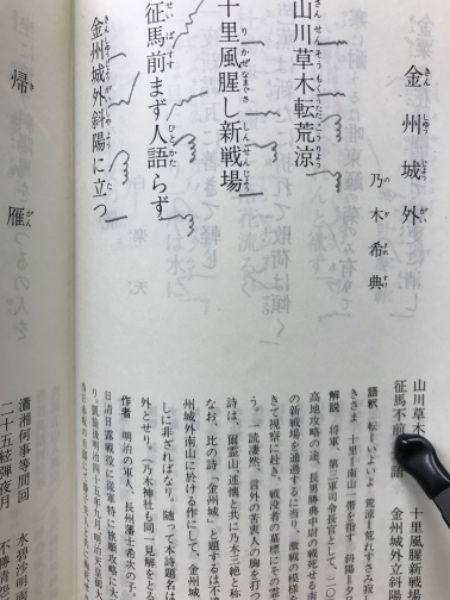 金州城外
乃木希典
山川草木転荒涼
十里風腥し新戦場
征馬前まず人語らず
金州城外斜陽に立つ
山川草木
十里風腥新戦場
征馬不前
語
金州城外立斜陽
語釈 転=いよいよ 荒涼=荒れすさみ寂
きさま 十里=南山一帯を指す 斜陽=夕日
解説 将軍、第三軍司令長官として、二〇
高地攻略の途、長男勝典中尉の戦死せる南
の新戦場を通過するに当り、激戦の模様を
きて視察に赴き、戦没者の墓標にその霊
う。一読凄然、言外の苦衷人の胸を打つ
詩は、爾霊山、述懐と共に乃木三絶と称
なお、此の詩「金州城」と題するは不
州城外南山に於ける作にして、金州城
しに非ざればなり。随って本詩題名は
外とせり。(乃木神社も同一見解をとる
作者 明治の軍人、長州藩士希次の子。
日清日露戦役に従軍特に旅順攻略に大
り。凱旋後明治四十五年九月明治天皇御大
帰雁
瀟湘何事等間回
水碧沙明
二十五絃弾夜月
不勝清怨